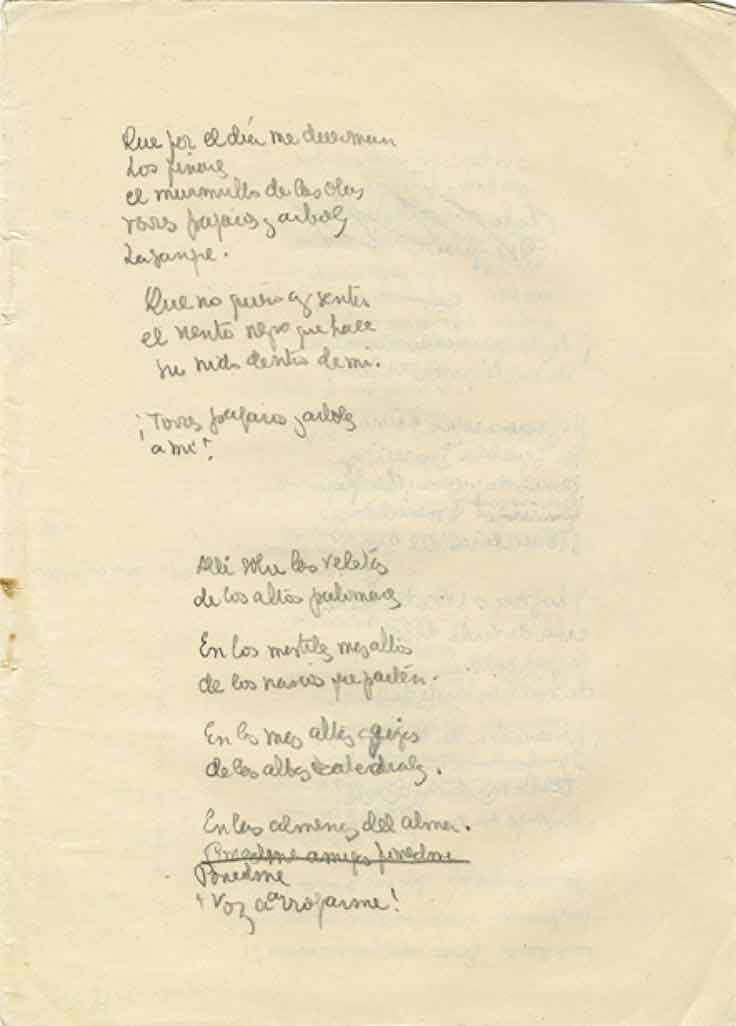 Que por el día me duerman
Los pinares
el murmullo de las olas
Toros pajaros y arboles
La sangre.
Que no quiero yo sentir
el viento negro que hace
su nido dentro de mi.
¡Toros pajaros y arboles
a mi!
Alli sobre las veletas
de los altos palomares
En los mastiles mas altos
de los navios que parten.
En las mas altas agujas
de las altas catedrales.
En las almenas del alma.
Ponedme amigos ponedme
Ponedme
¡Voy a arrojarme!